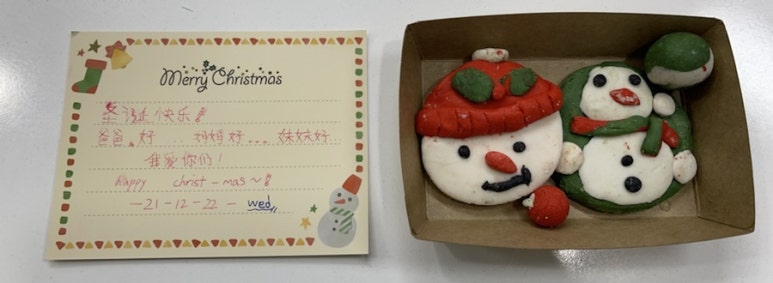 Merry Christmas
圣诞快乐!
爸爸好 .. 妈妈好... 妹妹好
我爱你们!
Happy christ-mas~!
-21-12-22- wed